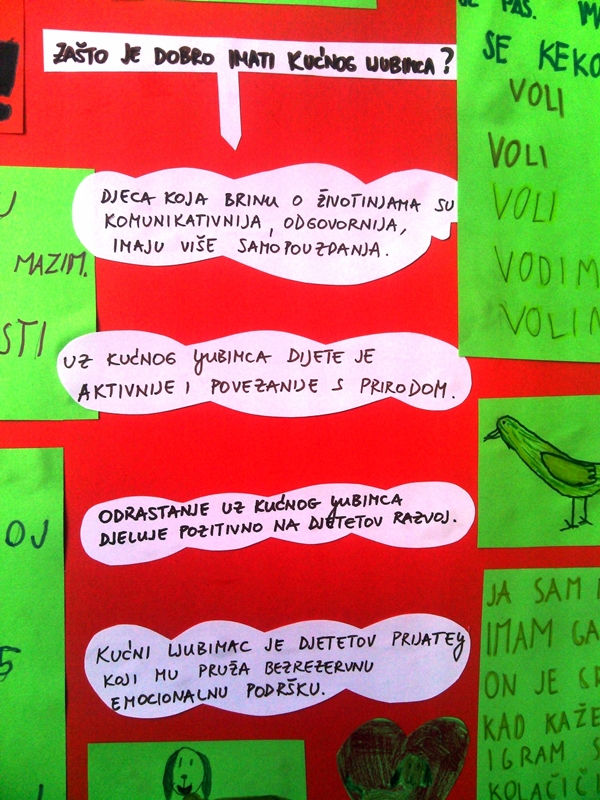 ZAŠTO JE DOBRO IMATI KUĆNOG LJUBIMCA?
DJECA KOJA BRINU O ŽIVOTINJAMA SU
KOMUNIKATIVNIJA, ODGOVORNIJA,
IMAJU VIŠE SAMOPOUZDANJA.
UZ KUĆNOG LJUBIMCA DIJETE JE
AKTIVNIJE I POVEZANIJE S PRIRODOM.
ODRASTANJE UZ KUĆNOG LJUBIMCA
DJELUJE POZITIVNO NA DJETETOV RAZVOJ.
KUĆNI LJUBIMAC JE DJETETOV PRIJATELJ
KOJI MU PRUŽA BEZREZERVNU
EMOCIONALNU PODRŠKU.
MAZIM.
STI
OJ
5
PAS.
SE KEKO
VOLI
VOLI
VOLI
VODIM
VOLIM
JA SAM
IMAM GA
ON JE
KAD KAŽE
IGRAM S
KOLAČIĆI
!